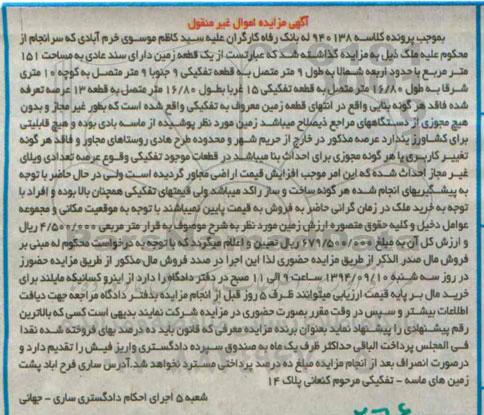 آگهی مزایده اموال غیر منقول
بموجب پرونده کلاسه ۹۴۰۱۳۸ له بانک رفاه کارگران علیه سید کاظم موسوی خرم آبادی که سرانجام از
محکوم علیه ملک ذیل به مزایده گذاشته شد که عبارتست از یک قطعه زمین دارای سند عادی به مساحت ۱۵۱
متر مربع با حدود اربعه شمالا به طول ۹ متر متصل به قطعه تفکیکی ۹ جنوبا ۹ متر متصل به کوچه ۱۰ متری
شرقا به طول ۱۶/۸۰ متر متصل به قطعه تفکیکی ۱۵ غربا بطول ۱۶/۸۰ متر متصل به قطعه ۱۳ عرصه تعرفه
شده فاقد هر گونه بنایی واقع در انتهای قطعه زمین معروف به تفکیکی واقع شده است که بطور غیر مجاز و بدون
هیچ مجوزی از دستگاههای مراجع ذیصلاح میباشد زمین مورد نظر پوشیده از ماسه بادی بوده و هیچ قابلیتی
برای کشاورز پندارد عرصه مذکور در خارج از حریم شهر و محدوده طرح هادی روستاهای مجاور و فاقد هر گونه
تغییر کاربری یا هر گونه مجوزی برای احداث بنا میباشد در قطعات موجود تفکیکی وقوع عرصه تعدادی ویلای
غیر مجاز احداث شده که این امر موجب افزایش قیمت اراضی مجاور گردیده است ولی در حال حاضر با توجه
به پیشگیریهای انجام شده هر گونه ساخت و ساز راکد میباشد ولی قیمتهای تفکیکی همچنان بالا بوده و افراد با
توجه به خرید ملک در زمان گرانی حاضر به فروش به قیمت پایین نمیباشند با توجه به موقعیت مکانی و مجموعه
عوامل دخیل و کلیه حقوق متصوره ارزش زمین مورد نظر به شرح موصوف به قرار متر مربعی ۴/۵۰۰/۰۰۰ ریال
و ارزش کل آن به مبلغ ۶۷۹/۵۰۰/۰۰۰ ریال تعیین و اعلام میگردد که با توجه به درخواست محکوم له مبنی بر
فروش مال صدر الذکر از طریق مزایده حضوری لذا این اجرا در صدد فروش مال مذکور از طریق مزایده حضورز
در روز سه شنبه ۱۳۹۴/۰۹/۱۰ ساعت ۹ الی ۱۱ صبح در دفتر دادگاه را دارد از اینرو کسانیکه مایلند برای
خرید مال بر پایه قیمت ارزیابی میتوانند ظرف ۵ روز قبل از انجام مزایده بدفتر دادگاه مراجعه جهت دریافت
اطلاعات بیشتر و سپس در وقت مقرر بصورت حضوری در مزایده شرکت نمایند بدیهی است کسی که بالاترین
رقم پیشنهادی را پیشنهاد نماید بعنوان برنده مزایده معرفی که قانون باید ده درصد بهای فروخته شده نقدا
فی المجلس پرداخت الباقی حداکثر ظرف یک ماه به صندوق سپرده دادگستری واریز فیش را تقدیم دارد و
درصورت انصراف بعد از انجام مزایده مبلغ ده درصد پرداختی مسترد نخواهد شد.آدرس ساری فرح اباد پشت
زمین های ماسه - تفکیکی مرحوم کنعانی پلاک ۱۴
شعبه ۵ اجرای احکام دادگستری ساری - جهانی